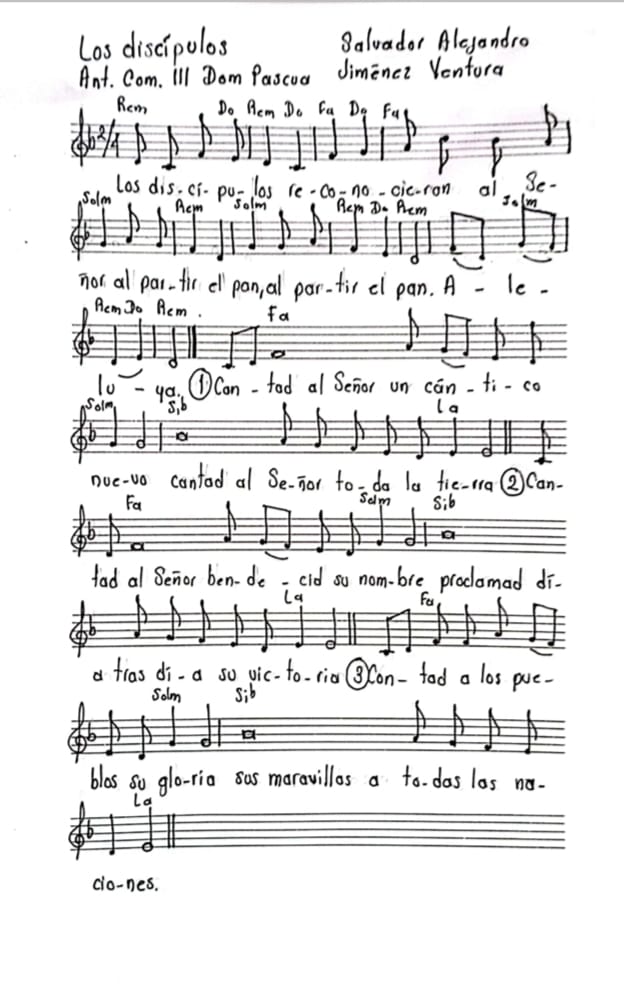 Los discípulos
Salvador Alejandro
Ant. Com. III Dom Pascua
Jiménez Ventura
Rem Do Rem Do Fa Do Fa
2/4
Los dis-cí-pu-los re-co-no-cie-ron al Se-
Solm Rem Solm Rem Do Rem Solm
ñor al par-tir el pan, al par-tir el pan. A - le -
Rem Do Rem. Fa
lu - ya. ① Can - tad al Señor un cán - ti - co
Solm Sib La
nue-vo cantad al Se-ñor to-da la tie-rra ② Can-
Fa Solm Sib
tad al Señor ben-de - cid su nom-bre proclamad dí-
La Fa
a tras dí-a su vic-to-ria ③ Con- tad a los pue-
Solm Sib
blos su glo-ria sus maravillas a to-das las na-
La
cio-nes.